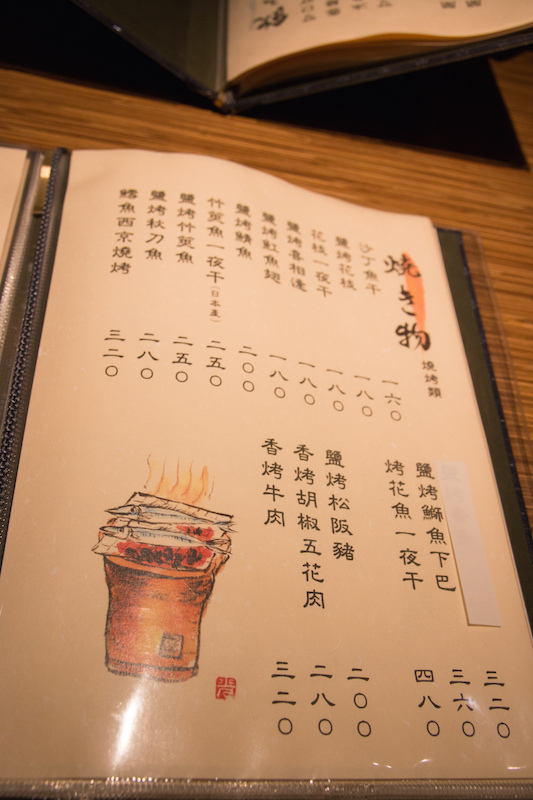 焼き物
燒烤類
沙丁魚干 一六〇
鹽烤花枝 一八〇
花枝一夜干 一八〇
鹽烤喜相逢 一八〇
鹽烤魟魚翅 一八〇
鹽烤鯖魚 二〇〇
竹筴魚一夜干(日本產) 二五〇
鹽烤竹筴魚 二五〇
鹽烤秋刀魚 二八〇
鱈魚西京燒烤 三二〇
三二〇
鹽烤鰤魚下巴 三六〇
烤花魚一夜干 四八〇
鹽烤松阪豬 二〇〇
香烤胡椒五花肉 二八〇
香烤牛肉 三二〇